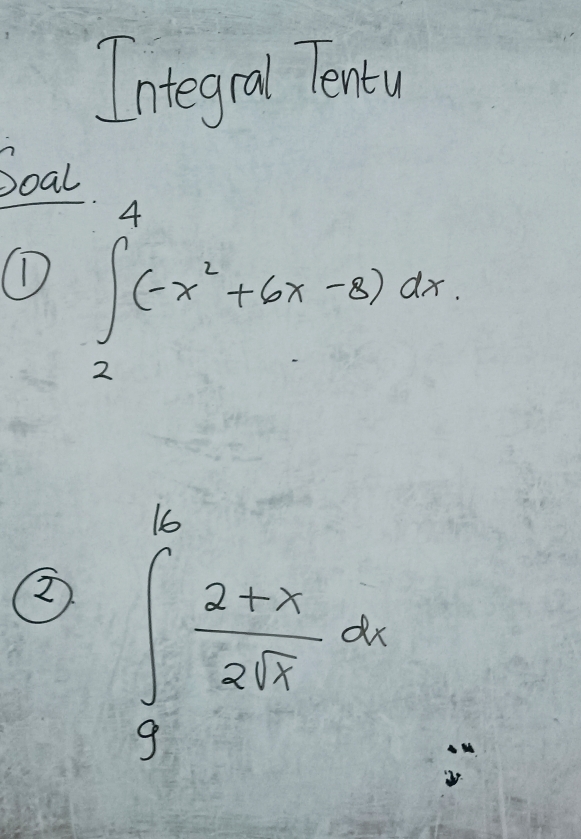 Integral Tentu
Soal.
① ∫₂⁴ (-x² + 6x - 8) dx.
② ∫₉¹⁶ (2 + x)/(2√x) dx